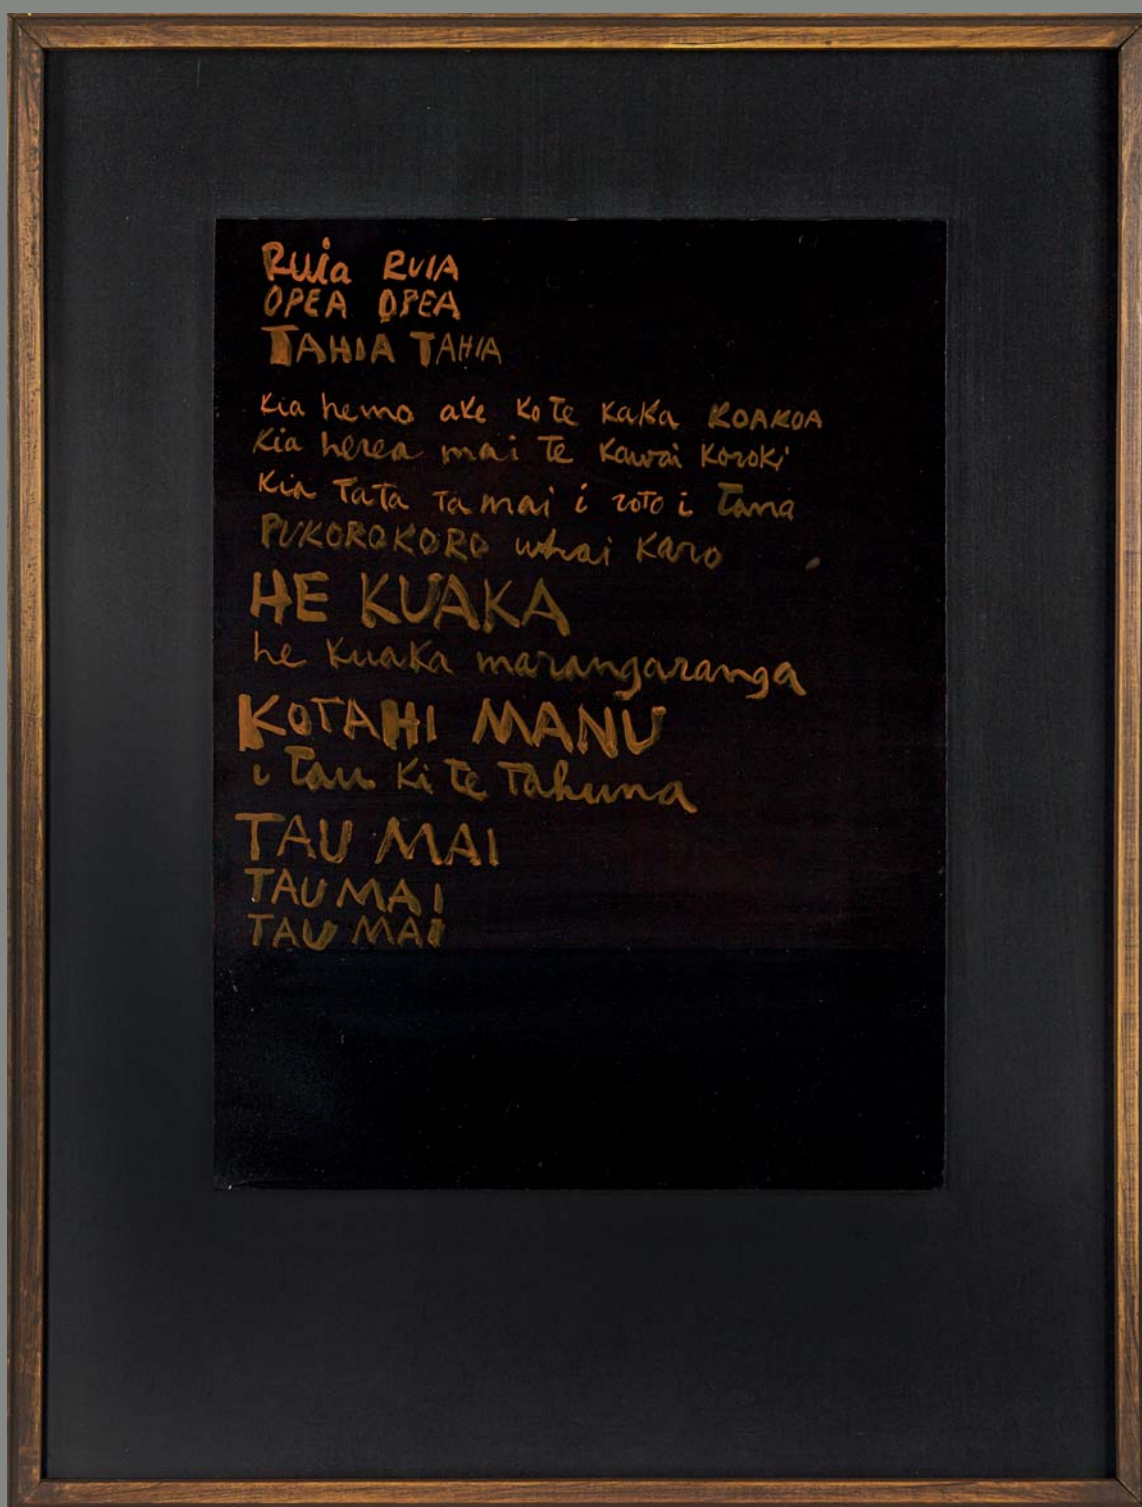 Ruia RUIA
OPEA OPEA
TAHIA TAHIA
Kia hemo ake Ko Te KaKa KOAKOA
Kia herea mai Te Kawai Koroki
Kia TaTa Ta mai i roto i Tana
PUKOROKORO whai Karo
HE KUAKA
he Kuaka marangaranga
KOTAHI MANU
i Tau Ki Te Tahuna
TAU MAI
TAU MAI
TAU MAI